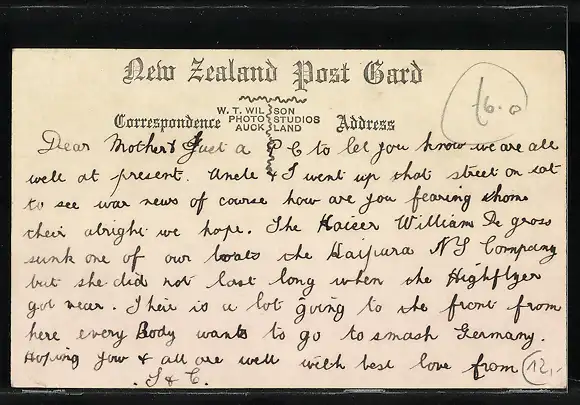 New Zealand Post Card
W. T. WILSON
PHOTO STUDIOS
AUCKLAND
Correspondence
Address
Dear Mother & Just a P C to let you know we are all
well at present. Uncle & I went up that street on sat
to see war news of course how are you fearing
their alright we hope. The Kaiser William De gross
sunk one of our boats the Kaipara NZ Company
but she did not last long when the Highflyer
got near. Their is a lot going to the front from
here every Body wants to go to smash Germany.
Hoping you & all are well with best love from
. S & C.
12,-